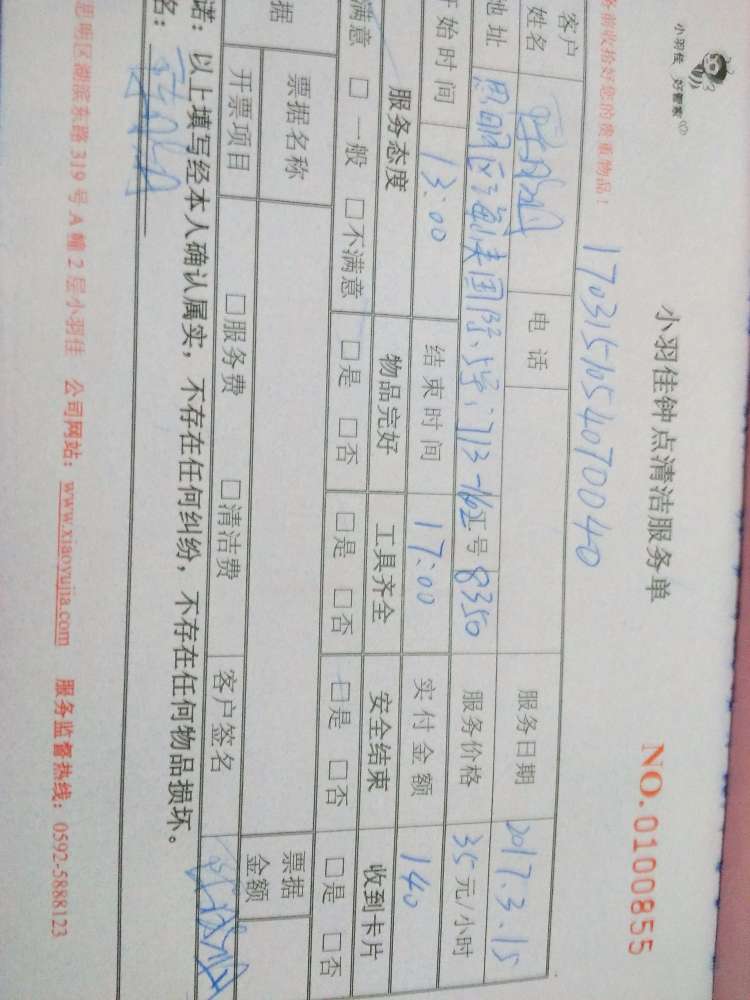 小羽佳 好管家
小羽佳钟点清洁服务单
NO.0100855
务前收拾好您的贵重物品！
1703151054070040
客户姓名 电话 服务日期 2017.3.15
地址 思明区 国际 713-762 工号 8350 服务价格 35元/小时
开始时间 13:00 结束时间 17:00 实付金额 140
服务态度 物品完好 工具齐全 安全结束 收到卡片
满意 □一般 □不满意 □是 □否 □是 □否 □是 □否 □是 □否
据 票据名称 票据金额
开票项目 □服务费 □清洁费 客户签名
诺：以上填写经本人确认属实，不存在任何纠纷，不存在任何物品损坏。
名：
思明区湖滨东路319号A幢2层小羽佳 公司网站：www.xiaoyujia.com 服务监督热线：0592-5888123